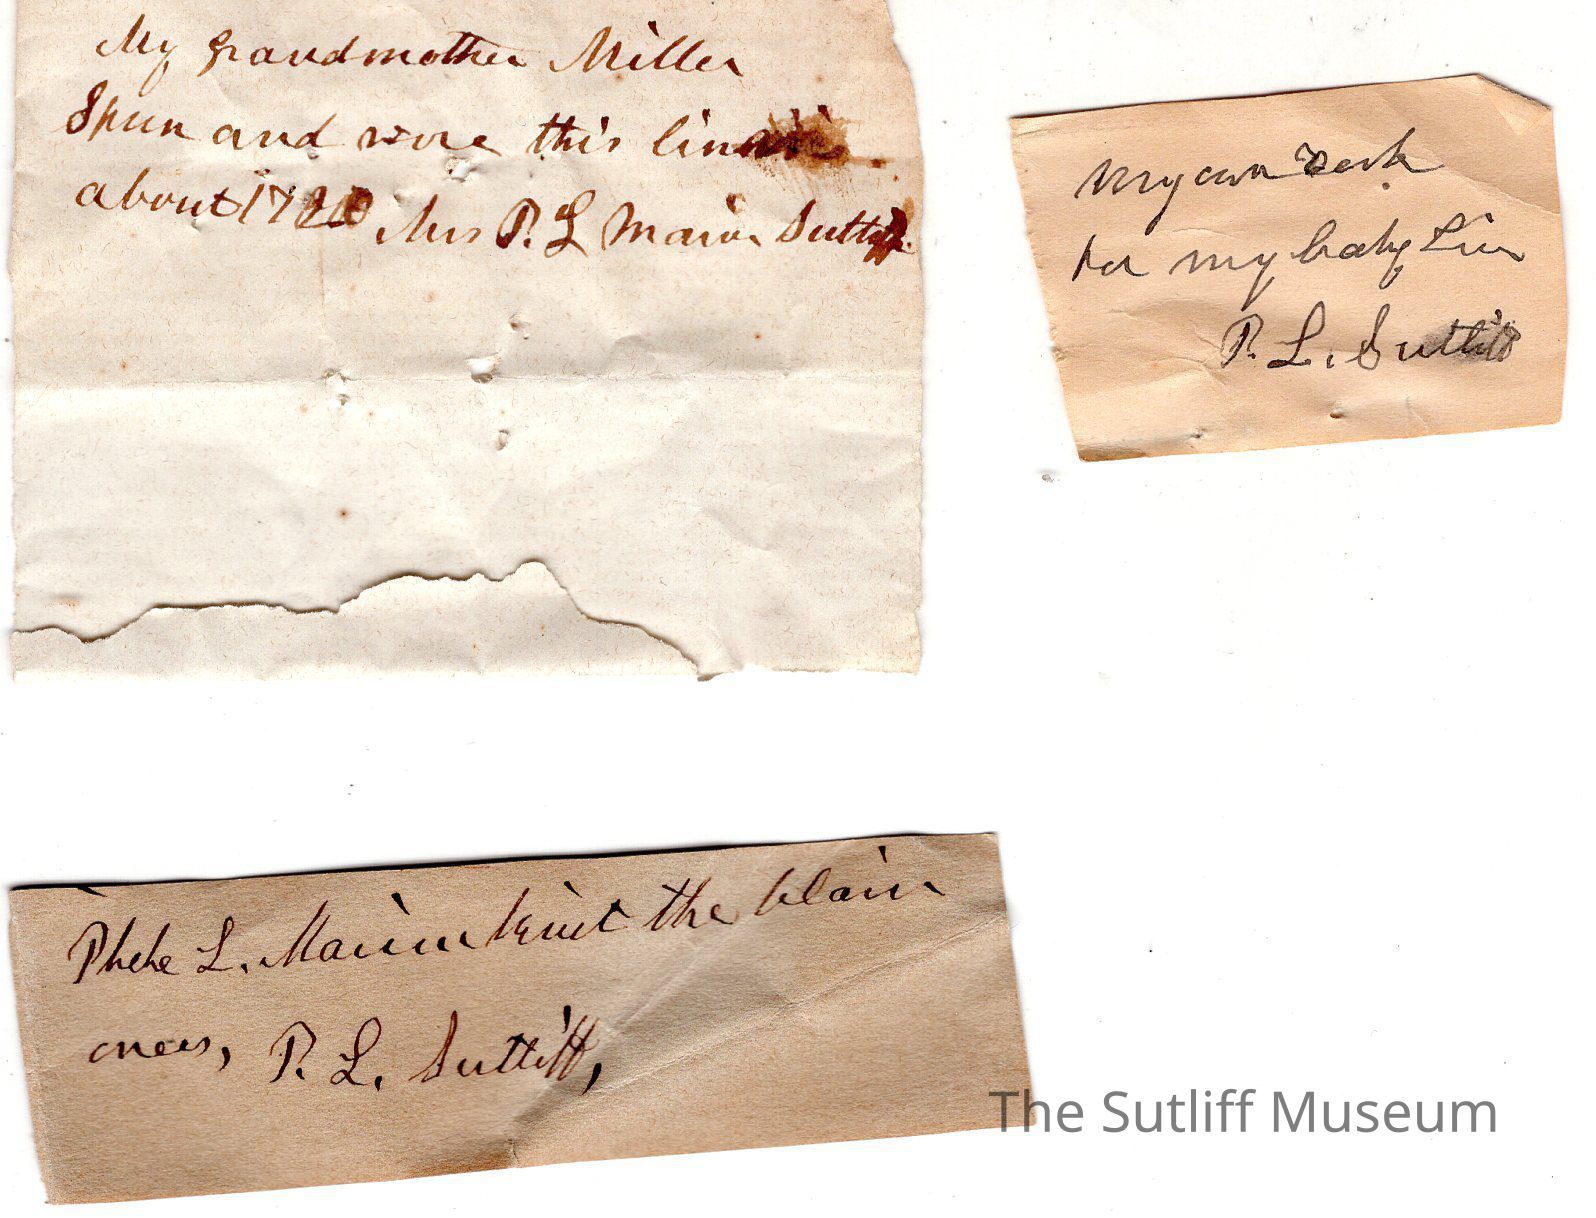 My grandmother Miller
Spun and wove this linnen
about 17 Mrs P. L Marvin Sutliff.
My own work
for my baby
P. L. Sutliff
Phebe L. Marvin knit the plain
ones, P. L. Sutliff,
The Sutliff Museum